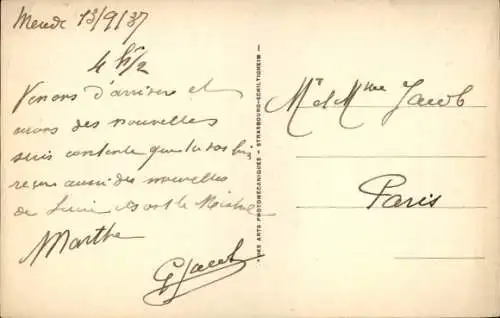 Mende 13/9/37
4 h 1/2
Venons d'arriver et
avons des nouvelles
suis contente que tu as
reçu aussi des nouvelles
de
Marthe
G Jacob
DES ARTS PHOTOMÉCANIQUES - STRASBOURG-SCHILTIGHEIM
Mr et Mme Jacob
Paris